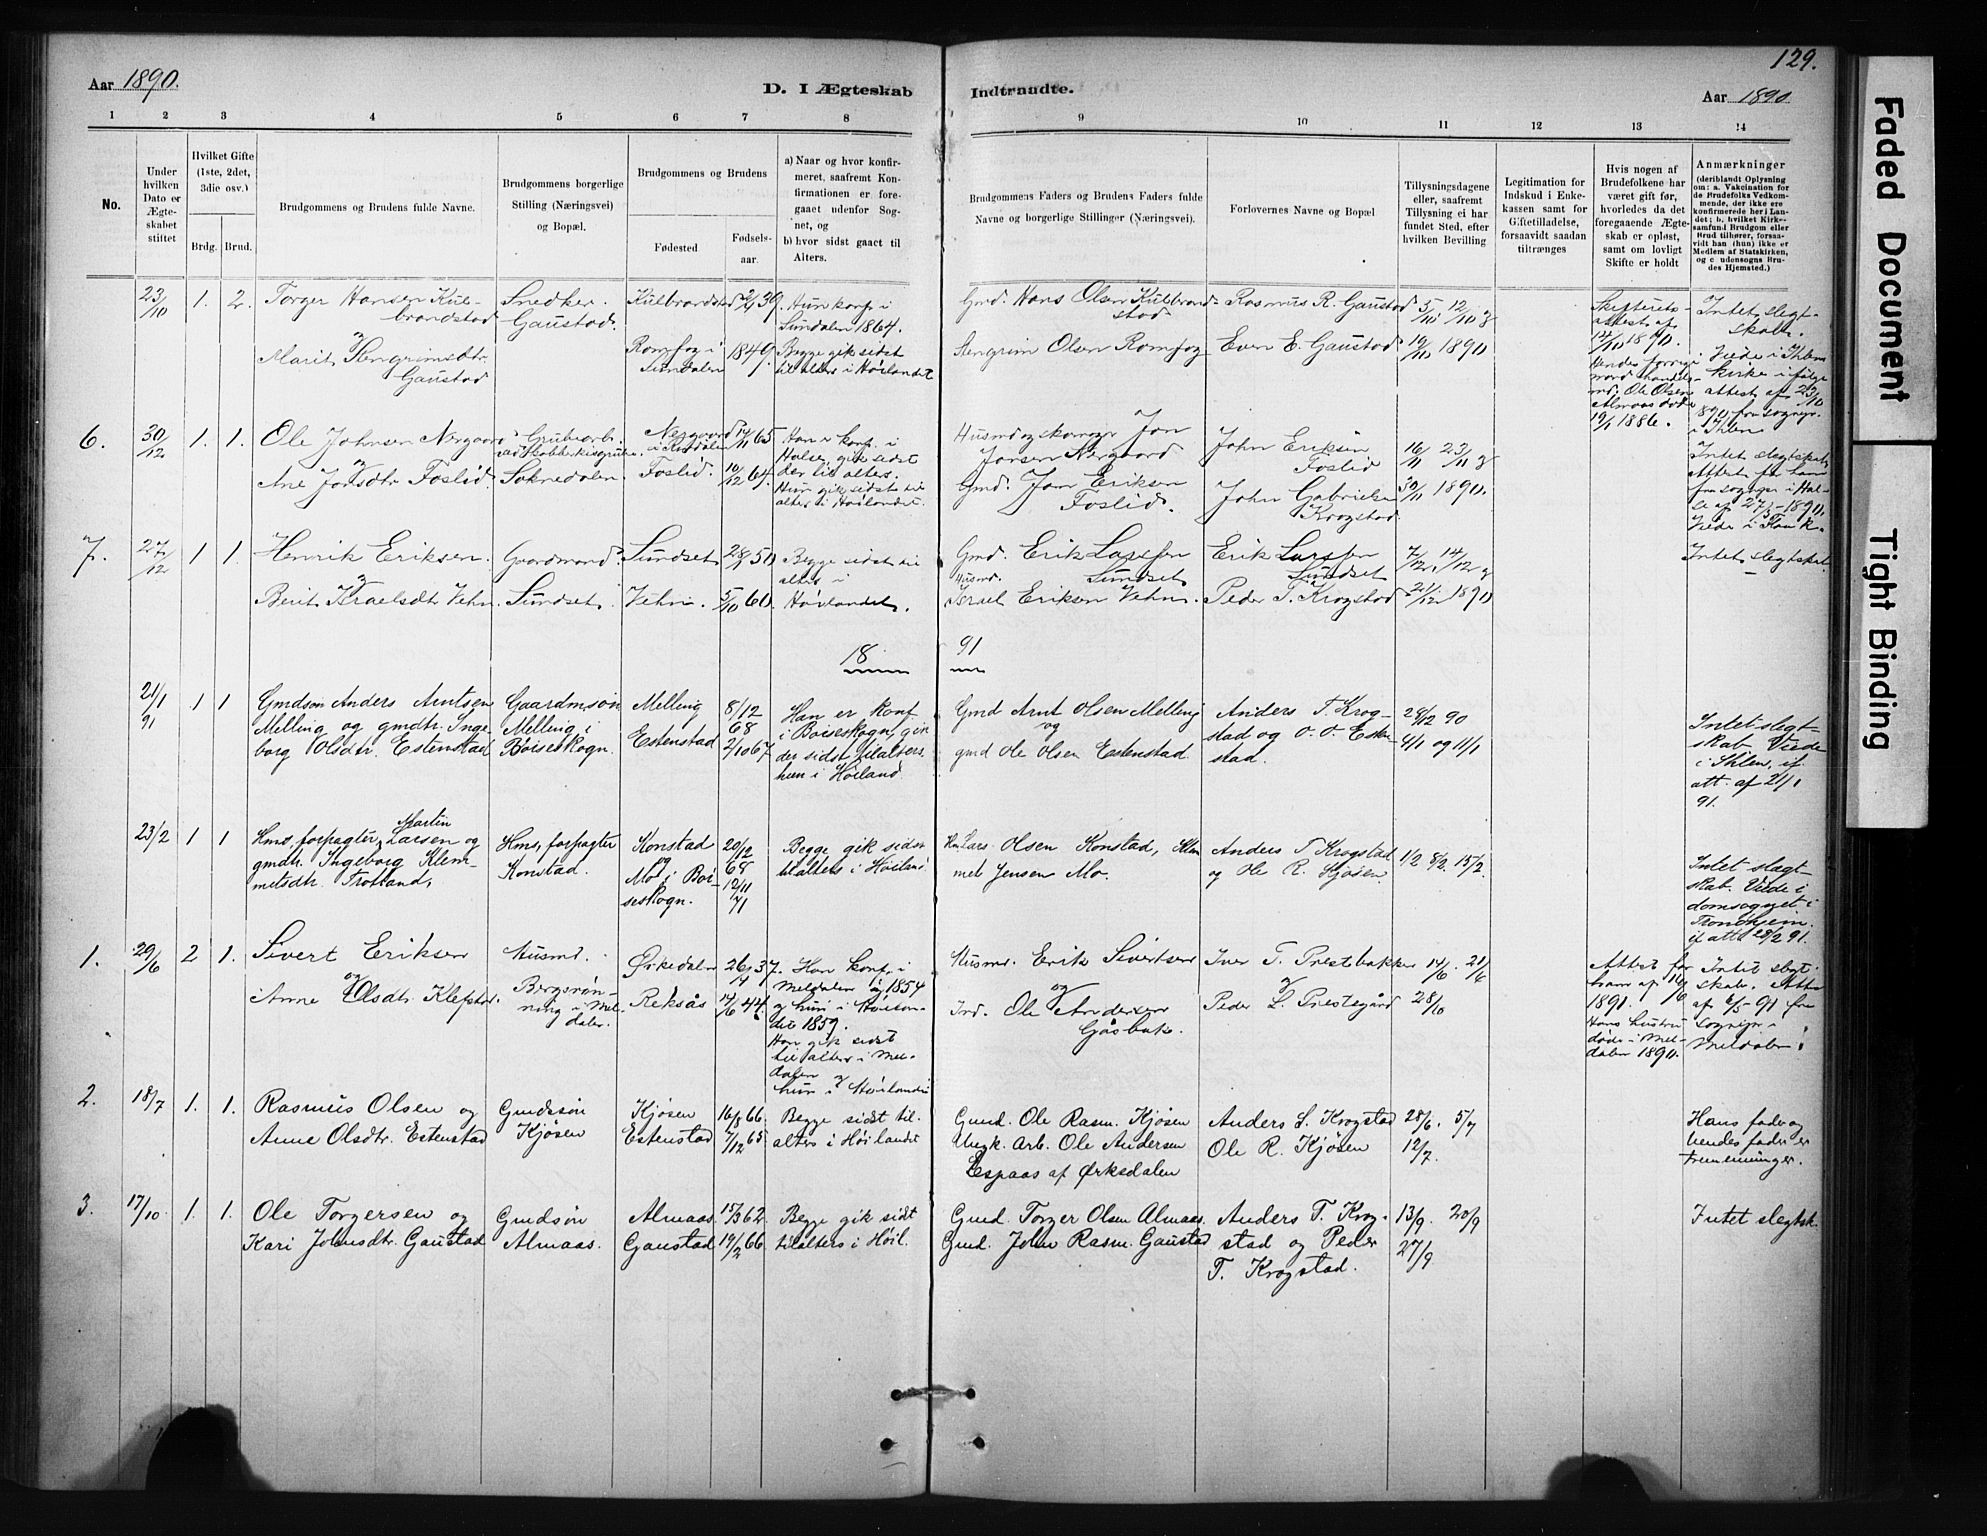 129.
Aar 1890.
D. I Ægteskab
Indtraadte.
Aar 1890
1 2 3 4 5 6 7 8 9 10 11 12 13 14
No.
Under hvilken Dato er Ægteskabet stiftet
Hvilket Gifte (1ste, 2det, 3die osv.)
Brdg. Brud.
Brudgommens og Brudens fulde Navne.
Brudgommens borgerlige Stilling (Næringsvei) og Bopæl.
Brudgommens og Brudens
Fødested
Fødselsaar.
a) Naar og hvor konfirmeret, saafremt Konfirmationen er foregaaet udenfor Sognet, og
b) hvor sidst gaaet til Alters.
Brudgommens Faders og Brudens Faders fulde Navne og borgerlige Stillinger (Næringsvei).
Forlovernes Navne og Bopæl
Tillysningsdagene eller, saafremt Tillysning ei har fundet Sted, efter hvilken Bevilling
Legitimation for Indskud i Enkekassen samt for Giftetilladelse, forsaavidt saadan tiltrænges
Hvis nogen af Brudefolkene har været gift før, hvorledes da det foregaaende Ægteskab er opløst, samt om lovligt Skifte er holdt
Anmærkninger
(deriblandt Oplysning om: a. Vakcination for de Brudefolks Vedkommende, der ikke ere konfirmerede her i Landet; b. hvilket Kirkesamfund Brudgom eller Brud tilhører, forsaavidt han (hun) ikke er Medlem af Statskirken, og c. udensogns Brudes Hjemsted.)
23/10 1. 2. Torger Hansen Kulbrandstad
og
Marit Stengrimsdtr. Gaustad
Snedker. Gaustad.
Kulbrandstad 39.
Romfog i Sundalen 1849.
Hun konf. i Sundalen 1864.
Begge gik sidst til alters i Høilandet
Gmd. Hans Olsen Kulbrandstad
Stengrim Olsen Romfog
Rasmus R. Gaustad
Even E. Gaustad
5/10. 12/10 &
19/10 1890
Skifteretsattest af 1890.
Hendes forrige mand Ole Olsen Almaas døde 19/1 1886.
Intet slegtskab.
Viede i Ihlen kirke ifølge attest af 23/10 890 fra sognepr. i Ihlen
6. 30/12 1. 1. Ole Johnsen Nergaard
og
Ane Jonsdtr Foslid.
Grubearb.
Soknedalen.
Nergaard 14/11 65
Foslid. 10/12 64.
Han er konf. i Halse, gik sidst der til alters.
Hun gik sidst til alters i Høilandet.
Husmd og skomager Jon Jonsen Nergaard
Gmd. Jon Eriksen Foslid.
John Eriksen Foslid
John Gabrielsen Krogstad
16/11 23/11 &
30/11 1890.
Intet slegtskab.
7. 27/12 1 1. Henrik Eriksen
og
Berit Israelsdtr Vehn.
Gaardmand
Sundset.
Sundset 28/8 50
Vehn. 5/10 60.
Begge sidst til alters i Høilandet.
Gmd. Erik Larssen Sundset
Husmd. Israel Eriksen Vehn.
Erik Larssen Sundset
Peder T. Krogstad
7/12. 14/12 &
21/12 1890
Intet slegtskab.
18 91
21/1 91 1 1 Gmdsøn Anders Arntsen
Melling og gmdtr. Ingeborg Olsdtr. Estenstad
Gaardmsøn
Melling i Bøiseskogn.
Melling 8/12 68
Estenstad 2/10 67
Han er konf. i Bøiseskogn, gik der sidst tilalters, hun i Høiland.
Gmd Arnt Olsen Melling
og
gmd Ole Olsen Estenstad.
Anders T. Krogstad og O. O. Estenstad.
28/12 90
4/1 og 11/1
Intet slegtskab. Viede i Ihlen, if. att. af 21/1 91.
23/2 1 1 Hms, forpagter, Martin Larsen og
gmdtr. Ingeborg Klemmetsdtr. Trotland,
Hms, forpagter
Konstad.
Konstad 20/12 68
og
Mo i Bøiseskogn. 12/11 71
Begge gik sidst tilalters i Høiland.
Lars Olsen Konstad, Klemmet Jensen Mo.
Anders T Krogstad og Ole R. Kjøsen.
1/2 8/2. 15/2.
Intet slægtskab. Viede i domsognet i Trondhjem. if. att. 28/2 91.
1. 29/6 2 1. Sivert Eriksen
og
Anne Olsdtr Klefstad
Husmd.
Bergsrønning i Meldalen.
Ørkedalen 26/4 37.
Reksås 14/6 44.
Han konf. i Meldalen i 1854 og hun i Høilandet 1859.
Han gik sidst til alters i Meldalen og hun i Høilandet
Husmd. Erik Sivertsen
og
Ind. Ole Andersen Gåsbak.
Iver T. Prestbakken
og
Peder L. Prestegård
14/6. 21/6
28/6
Attest for ham af 1891.
Hans hustru døde i Meldalen 1890.
Intet slegtskab. Att. af 6/5-91 fra sognepr. i Meldalen.
2. 18/7 1. 1. Rasmus Olsen og
Anne Olsdtr. Estenstad
Gmdssøn
Kjøsen
Kjøsen 16/8 66.
Estenstad 7/12 65.
Begge sidst tilalters i Høilandet
Gmd. Ole Rasm. Kjøsen
Ungk. Arb. Ole Andersen
Espaas af Ørksdalen
Anders S. Krogstad
Ole R. Kjøsen
28/6. 5/7
12/7.
Hans fader og hendes fader er tremenninger.
3. 17/10. 1. 1. Ole Torgersen og
Kari Johnsdtr. Gaustad
Gmdsøn
Almaas.
Almaas. 15/3 62.
Gaustad 19/2 66.
Begge gik sidst tilalters i Høil.
Gmd. Torger Olsen Almaas.
Gmd. John Rasm. Gaustad
Anders T. Krogstad og Peder T. Krogstad.
13/9. 20/9
27/9
Intet slegtsk.
Faded Document
Tight Binding